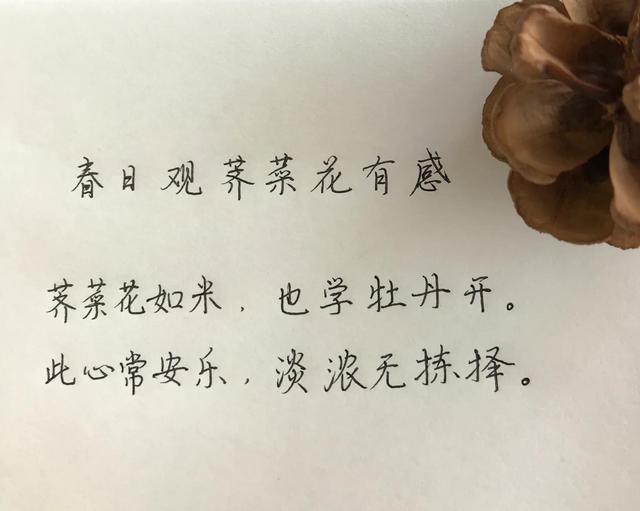 春日观荠菜花有感
荠菜花如米，也学牡丹开。
此心常安乐，淡浓无拣择。